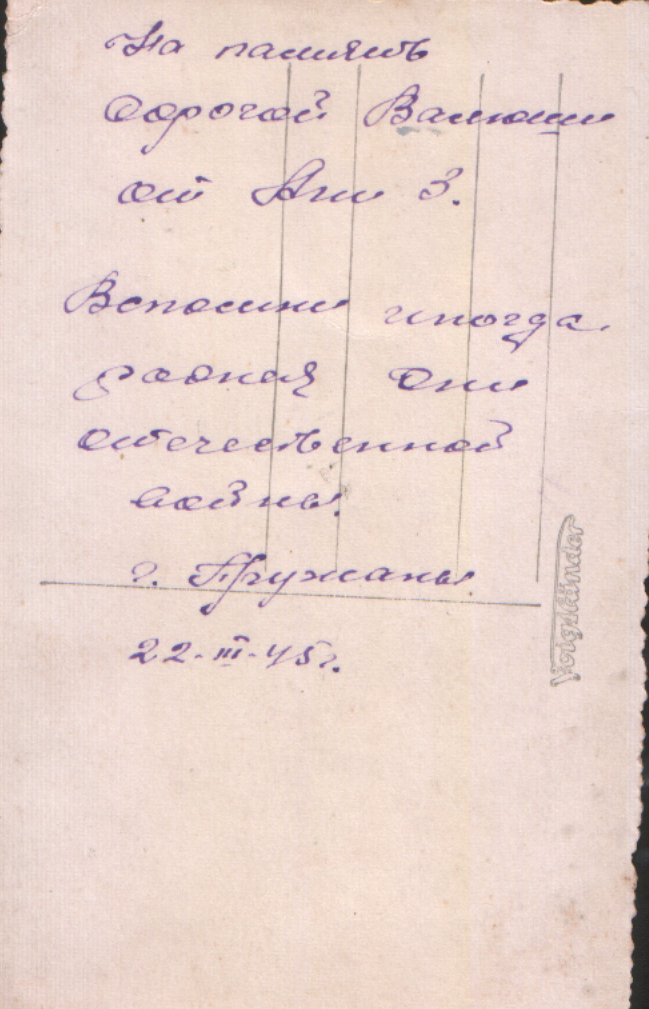 На память
дорогой Валюши
от Ани З.
Вспомни иногда
родная дни
отечественной
войны.
г. Пружаны.
22-III-45г.
Voigtländer